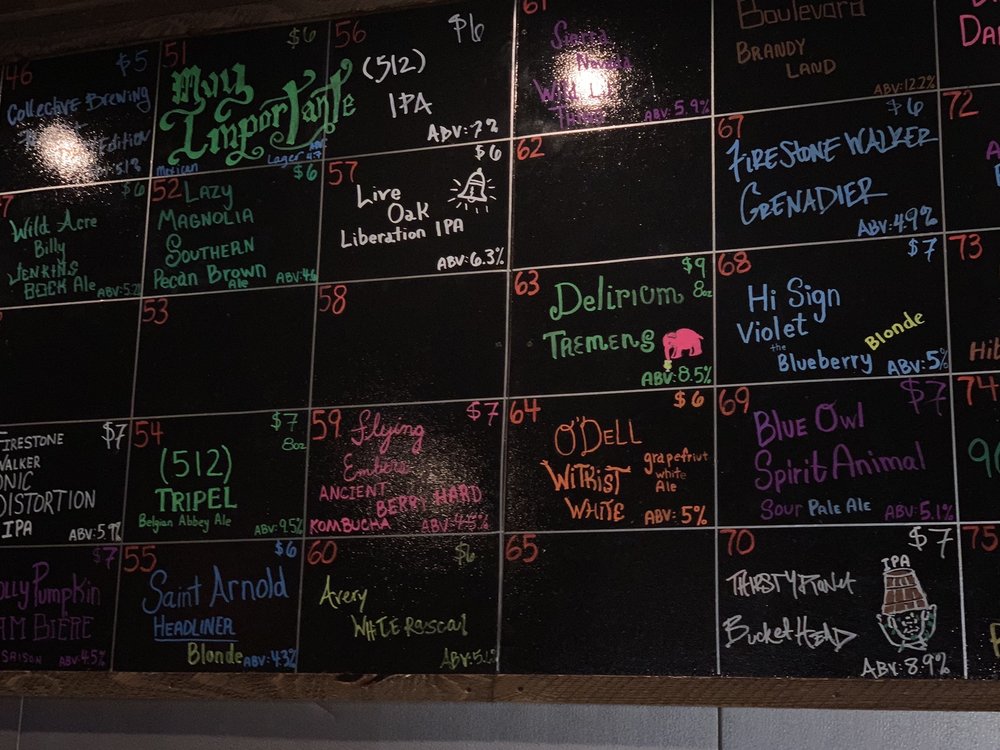 46
$5
Collective Brewing
Edition
51
$6
Muy
Importante
Mexican
Lager 4.7
56
$6
(512)
IPA
ABV: 7%
61
Sierra
Nevada
ABV: 5.9%
Boulevard
BRANDY
LAND
ABV: 12.2%
7
$6
Wild Acre
Billy
JENKINS
BOCK Ale
52
$6
LAZY
MAGNOLIA
SOUTHERN
Pecan Brown
Ale
57
$6
Live
Oak
Liberation IPA
ABV: 6.3%
62
67
$6
FIRESTONE WALKER
GRENADIER
ABV: 4.9%
72
53
58
63
$9
8oz
Delirium
TREMENS
ABV: 8.5%
68
$7
Hi Sign
Violet
the
Blueberry
Blonde
ABV: 5%
73
Hib
$7
FIRESTONE
WALKER
DISTORTION
IPA
54
$7
8oz
(512)
TRIPEL
Belgian Abbey Ale
ABV: 9.5%
59
$7
Flying
Embers
ANCIENT
BERRY HARD
KOMBUCHA
ABV: 4.5%
64
$6
O'DELL
WITKIST
WHITE
grapefriut
white
Ale
ABV: 5%
69
$7
BLUE OWL
Spirit Animal
Sour Pale Ale
ABV: 5.1%
74
$7
ABV: 4.5%
55
$6
Saint Arnold
HEADLINER
Blonde
ABV: 4.3%
60
$6
Avery
WHITE RASCAL
65
70
$7
IPA
THIRSTY PLANET
BUCKET HEAD
ABV: 8.9%
75